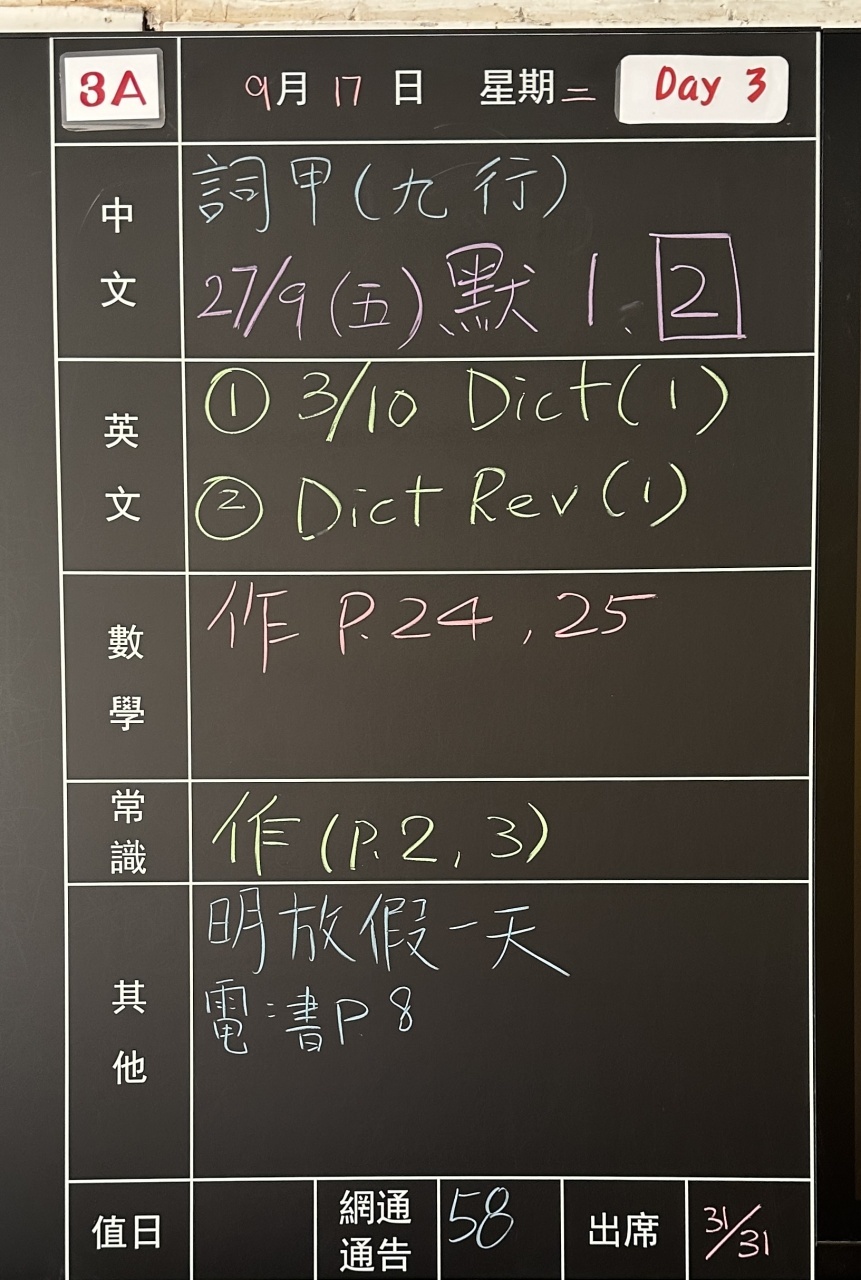 3A 9月17日 星期二 Day 3
中文
詞甲(九行)
27/9(五)默 1、2
英文
① 3/10 Dict(1)
② Dict Rev(1)
數學
作 P.24,25
常識
作(P.2,3)
其他
明放假一天
電:書P.8
值日
網通通告 58
出席 31/31